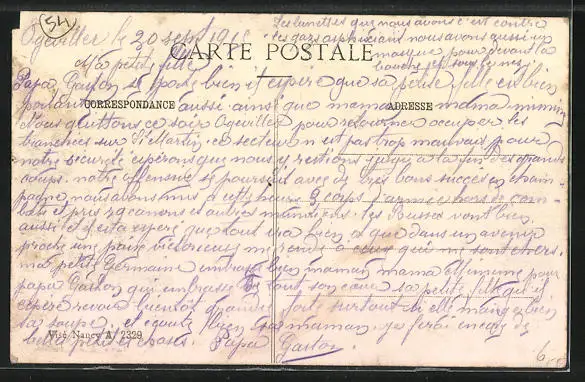 54
Ogeviller le 20 sept 1915
Les lunettes que nous avons c'est contre
les gaz asphyxiant nous avons aussi un
masque pour devant la
bouche et sous le nez
CARTE POSTALE
Ma petite fille
Papa Gaston se porte bien il espère que sa petite fille est bien
portante aussi ainsi que maman mama mimine
CORRESPONDANCE
ADRESSE
Nous quittons ce soir Ogeviller pour retourner occuper les
tranchées sur St Martin, ce secteur n'est pas trop mauvais pour
notre sécurité espérons que nous y restions jusqu'à la fin des grands
coups. notre offensive se poursuit avec de très bons succès en cham-
pagne nous avons mis à cette heure 3 corps d'armée hors de com-
bat et pris 79 canons et autres munitions. les Russes vont bien
aussi et il est a espérer que tout ira bien et que dans un avenir
proche une paix victorieuse me rende à ceux qui me sont chers.
ma petite Germaine embrasse bien maman mama mimine pour
papa Gaston qui embrasse de tout son coeur sa petite fille qu'il
espère revoir bientôt grande forte surtout si elle mange bien
sa soupe et écoute bien sa maman. je ferai encore de
belles petites choses. Papa
Gaston
Visé Nancy A/ 2329
6.00